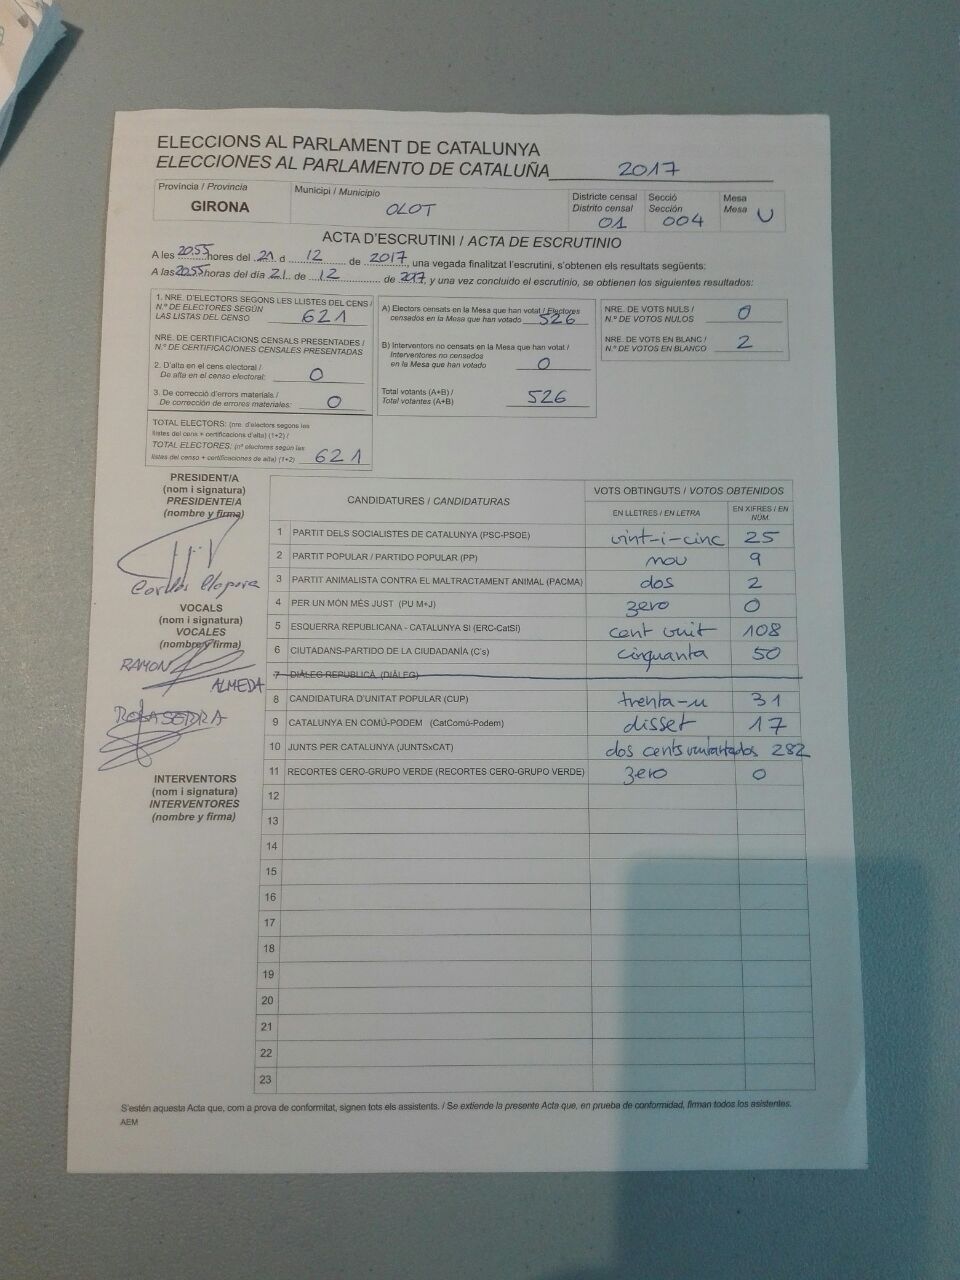 ELECCIONS AL PARLAMENT DE CATALUNYA
ELECCIONES AL PARLAMENTO DE CATALUÑA 2017
Província / Provincia
GIRONA
Municipi / Municipio
OLOT
Districte censal
Distrito censal
01
Secció
Sección
004
Mesa
Mesa
U
ACTA D'ESCRUTINI / ACTA DE ESCRUTINIO
A les 2055 hores del 21 d 12 de 2017, una vegada finalitzat l'escrutini, s'obtenen els resultats següents:
A las 2055 horas del día 21 de 12 de 2017, y una vez concluido el escrutinio, se obtienen los siguientes resultados:
1. NRE. D'ELECTORS SEGONS LES LLISTES DEL CENS /
N.º DE ELECTORES SEGÚN
LAS LISTAS DEL CENSO 621
NRE. DE CERTIFICACIONS CENSALS PRESENTADES /
N.º DE CERTIFICACIONES CENSALES PRESENTADAS
2. D'alta en el cens electoral /
De alta en el censo electoral: 0
3. De correcció d'errors materials /
De corrección de errores materiales: 0
TOTAL ELECTORS: (nre. d'electors segons les
llistes del cens + certificacions d'alta) (1+2) /
TOTAL ELECTORES: (nº electores según las
listas del censo + certificaciones de alta) (1+2) 621
A) Electors censats en la Mesa que han votat / Electores
censados en la Mesa que han votado 526
B) Interventors no censats en la Mesa que han votat /
Interventores no censados
en la Mesa que han votado 0
Total votants (A+B) /
Total votantes (A+B) 526
NRE. DE VOTS NULS /
N.º DE VOTOS NULOS 0
NRE. DE VOTS EN BLANC /
N.º DE VOTOS EN BLANCO 2
PRESIDENT/A
(nom i signatura)
PRESIDENTE/A
(nombre y firma)
VOCALS
(nom i signatura)
VOCALES
(nombre y firma)
RAMON
ALMEDA
ROSA SERRA
INTERVENTORS
(nom i signatura)
INTERVENTORES
(nombre y firma)
CANDIDATURES / CANDIDATURAS VOTS OBTINGUTS / VOTOS OBTENIDOS
EN LLETRES / EN LETRA EN XIFRES / EN NÚM.
1 PARTIT DELS SOCIALISTES DE CATALUNYA (PSC-PSOE) vint-i-cinc 25
2 PARTIT POPULAR / PARTIDO POPULAR (PP) nou 9
3 PARTIT ANIMALISTA CONTRA EL MALTRACTAMENT ANIMAL (PACMA) dos 2
4 PER UN MÓN MÉS JUST (PU M+J) zero 0
5 ESQUERRA REPUBLICANA - CATALUNYA SÍ (ERC-CatSí) cent vuit 108
6 CIUTADANS-PARTIDO DE LA CIUDADANÍA (C's) cinquanta 50
7 DIÀLEG REPUBLICÀ (DIÀLEG)
8 CANDIDATURA D'UNITAT POPULAR (CUP) trenta-u 31
9 CATALUNYA EN COMÚ-PODEM (CatComú-Podem) disset 17
10 JUNTS PER CATALUNYA (JUNTSxCAT) dos cents 282
11 RECORTES CERO-GRUPO VERDE (RECORTES CERO-GRUPO VERDE) zero 0
12
13
14
15
16
17
18
19
20
21
22
23
S'estén aquesta Acta que, com a prova de conformitat, signen tots els assistents. / Se extiende la presente Acta que, en prueba de conformidad, firman todos los asistentes.
AEM